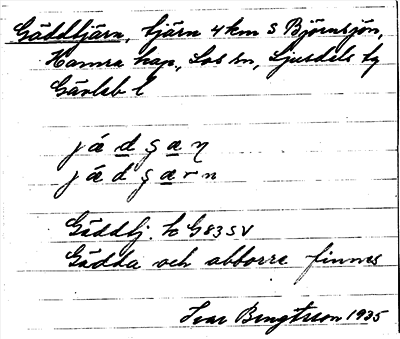 Gäddtjärn, tjärn 4 km S Björnsjön,
Hamra kap., Los sn, Ljusdals tg
Gävleb l
j á d g a
j á d g a r n
Gäddtj. k G83SV
Gädda och abborre finnes
Ivar Bengtsson 1935